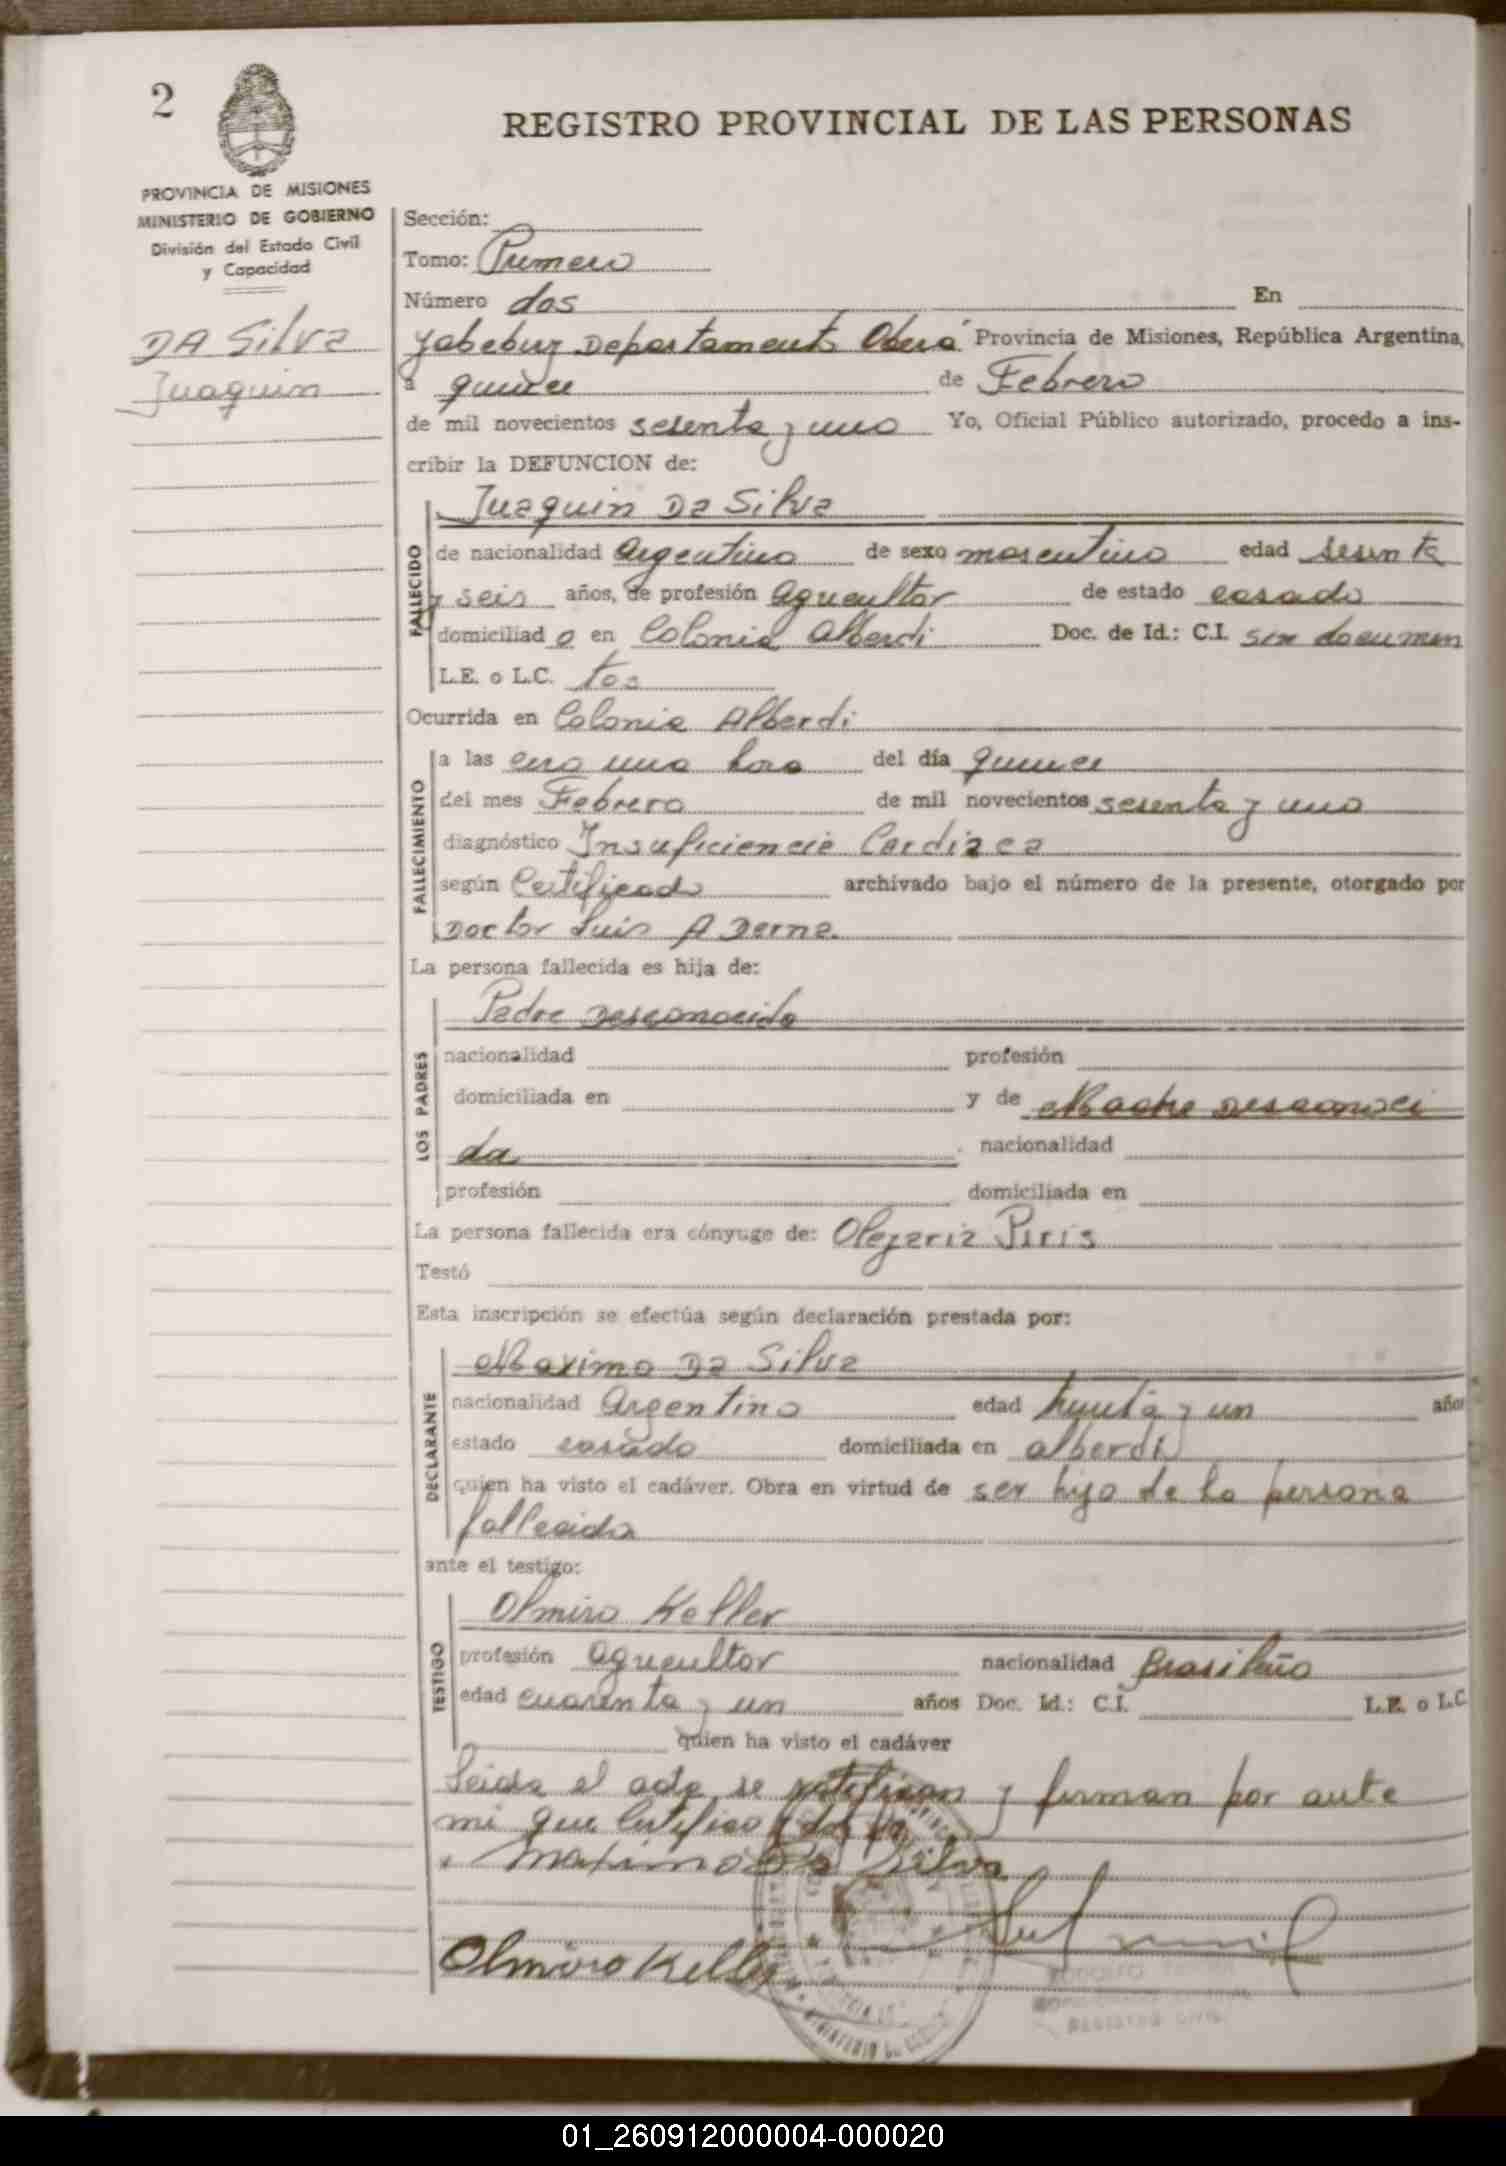 2
REGISTRO PROVINCIAL DE LAS PERSONAS
PROVINCIA DE MISIONES
MINISTERIO DE GOBIERNO
División del Estado Civil
y Capacidad
DA Silva
Juaquin
Sección:
Tomo: Primero
Número dos En
Yabebuy Departamento Oberá Provincia de Misiones, República Argentina,
a quince de Febrero
de mil novecientos sesenta y uno Yo, Oficial Público autorizado, procedo a ins-
cribir la DEFUNCION de:
Juaquin Da Silva
FALLECIDO
de nacionalidad Argentino de sexo mascutino edad sesenta
y seis años, de profesión Agricultor de estado casado
domiciliad o en Colonia Alberdi Doc. de Id.: C.I. sin documen
L.E. o L.C. tos
Ocurrida en Colonia Alberdi
FALLECIMIENTO
a las cero una hora del día quince
del mes Febrero de mil novecientos sesenta y uno
diagnóstico Insuficiencia Cardiaca
según Certificado archivado bajo el número de la presente, otorgado por
Doctor Luis A Derna.
La persona fallecida es hija de:
LOS PADRES
Padre Desconocido
nacionalidad profesión
domiciliada en y de Madre Desconoci
da nacionalidad
profesión domiciliada en
La persona fallecida era cónyuge de: Olegaria Piris
Testó
Esta inscripción se efectúa según declaración prestada por:
DECLARANTE
Maximo Da Silva
nacionalidad Argentino edad treinta y un años
estado casado domiciliada en alberdi
quien ha visto el cadáver. Obra en virtud de ser hijo de la persona
fallecida
ante el testigo:
TESTIGO
Olmiro Keller
profesión agricultor nacionalidad Brasileño
edad cuarenta y un años Doc. Id.: C.I. L.E. o L.C
quien ha visto el cadáver
Leida el acta se ratifican y firman por ante
mi que Certifico y doy fe
Maximo Da Silva
Olmiro Keller
RODOLFO
REGISTRO CIVIL
01_260912000004-000020